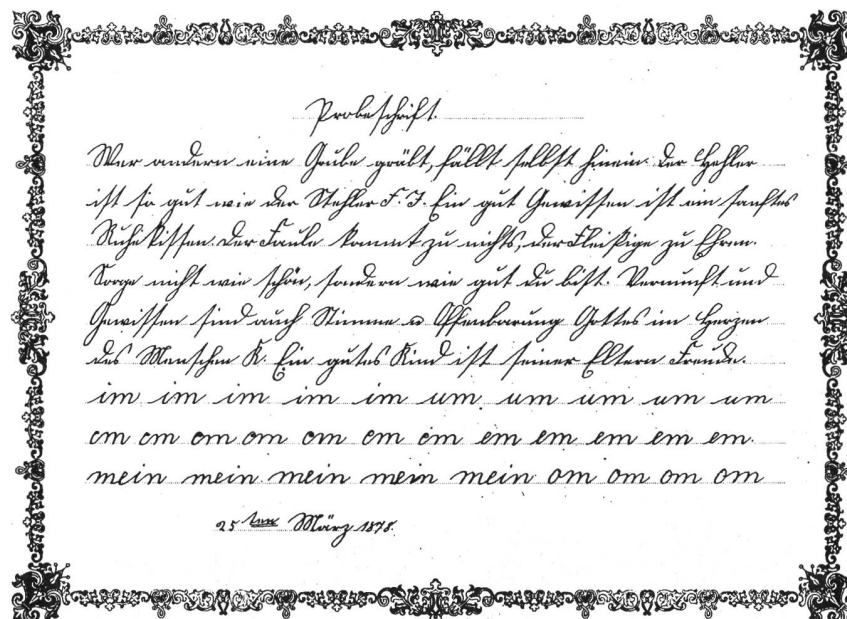 Probeschrift.
Wer andern eine Grube gräbt, fällt selbst hinein. Der Hehler
ist so gut wie der Stehler F. J. Ein gut Gewissen ist ein sanftes
Ruhekissen. Der Faule kommt zu nichts, der Fleißige zu Ehren.
Sorge nicht wie schön, sondern wie gut du bist. Vernunft und
Gewissen sind auch Stimme u Offenbarung Gottes im Herzen
des Menschen K. Ein gutes Kind ist seiner Eltern Freude.
im im im im im um um um um um
om om om om om om om em em em em em.
mein mein mein mein mein om om om om
25ten März 1878.